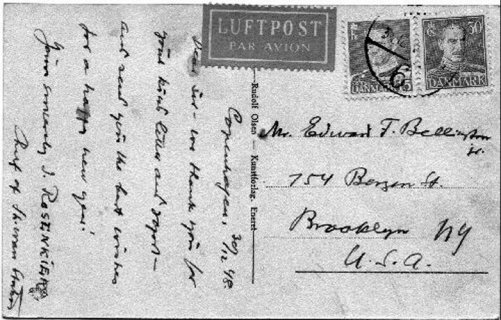 LUFTPOST
PAR AVION
50
DANMARK
Rudolf Olsen — Kunstforlag. Eneret
Copenhagen 30/12 48
Dear Sir - we thank you for
your kind letter and report -
and send you the best wishes
for a happy new year!
Yours sincerely J. ROSENKJÆR
Mr. Edward F. Bellington
Jr.
754 Bergen St.
Brooklyn NY
U.S.A.